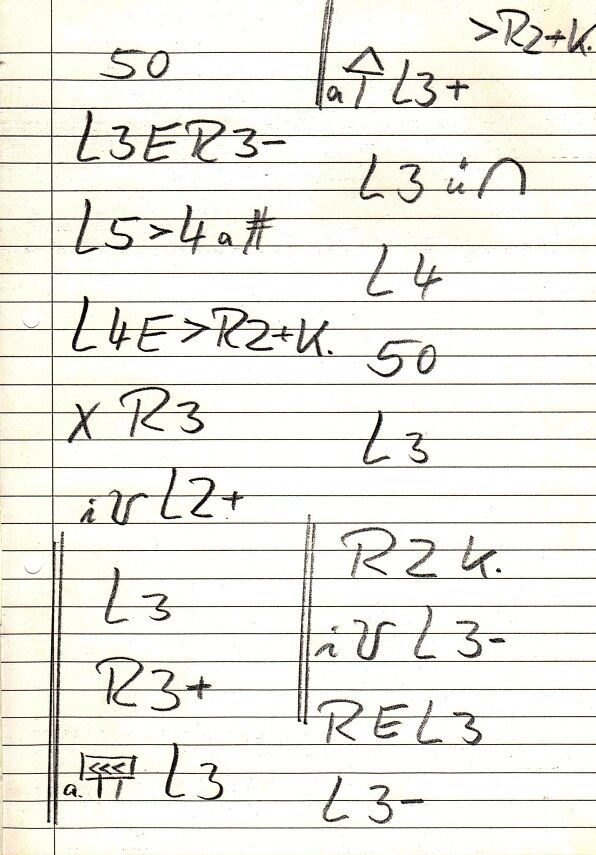 50
L3ER3-
L5>4a#
L4E>R2+K.
X R3
iv L2+
L3
R3+
a. <<< L3
>R2+K.
a L3+
L3 ü∩
L4
50
L3
R2 K.
iv L3-
REL3
L3-